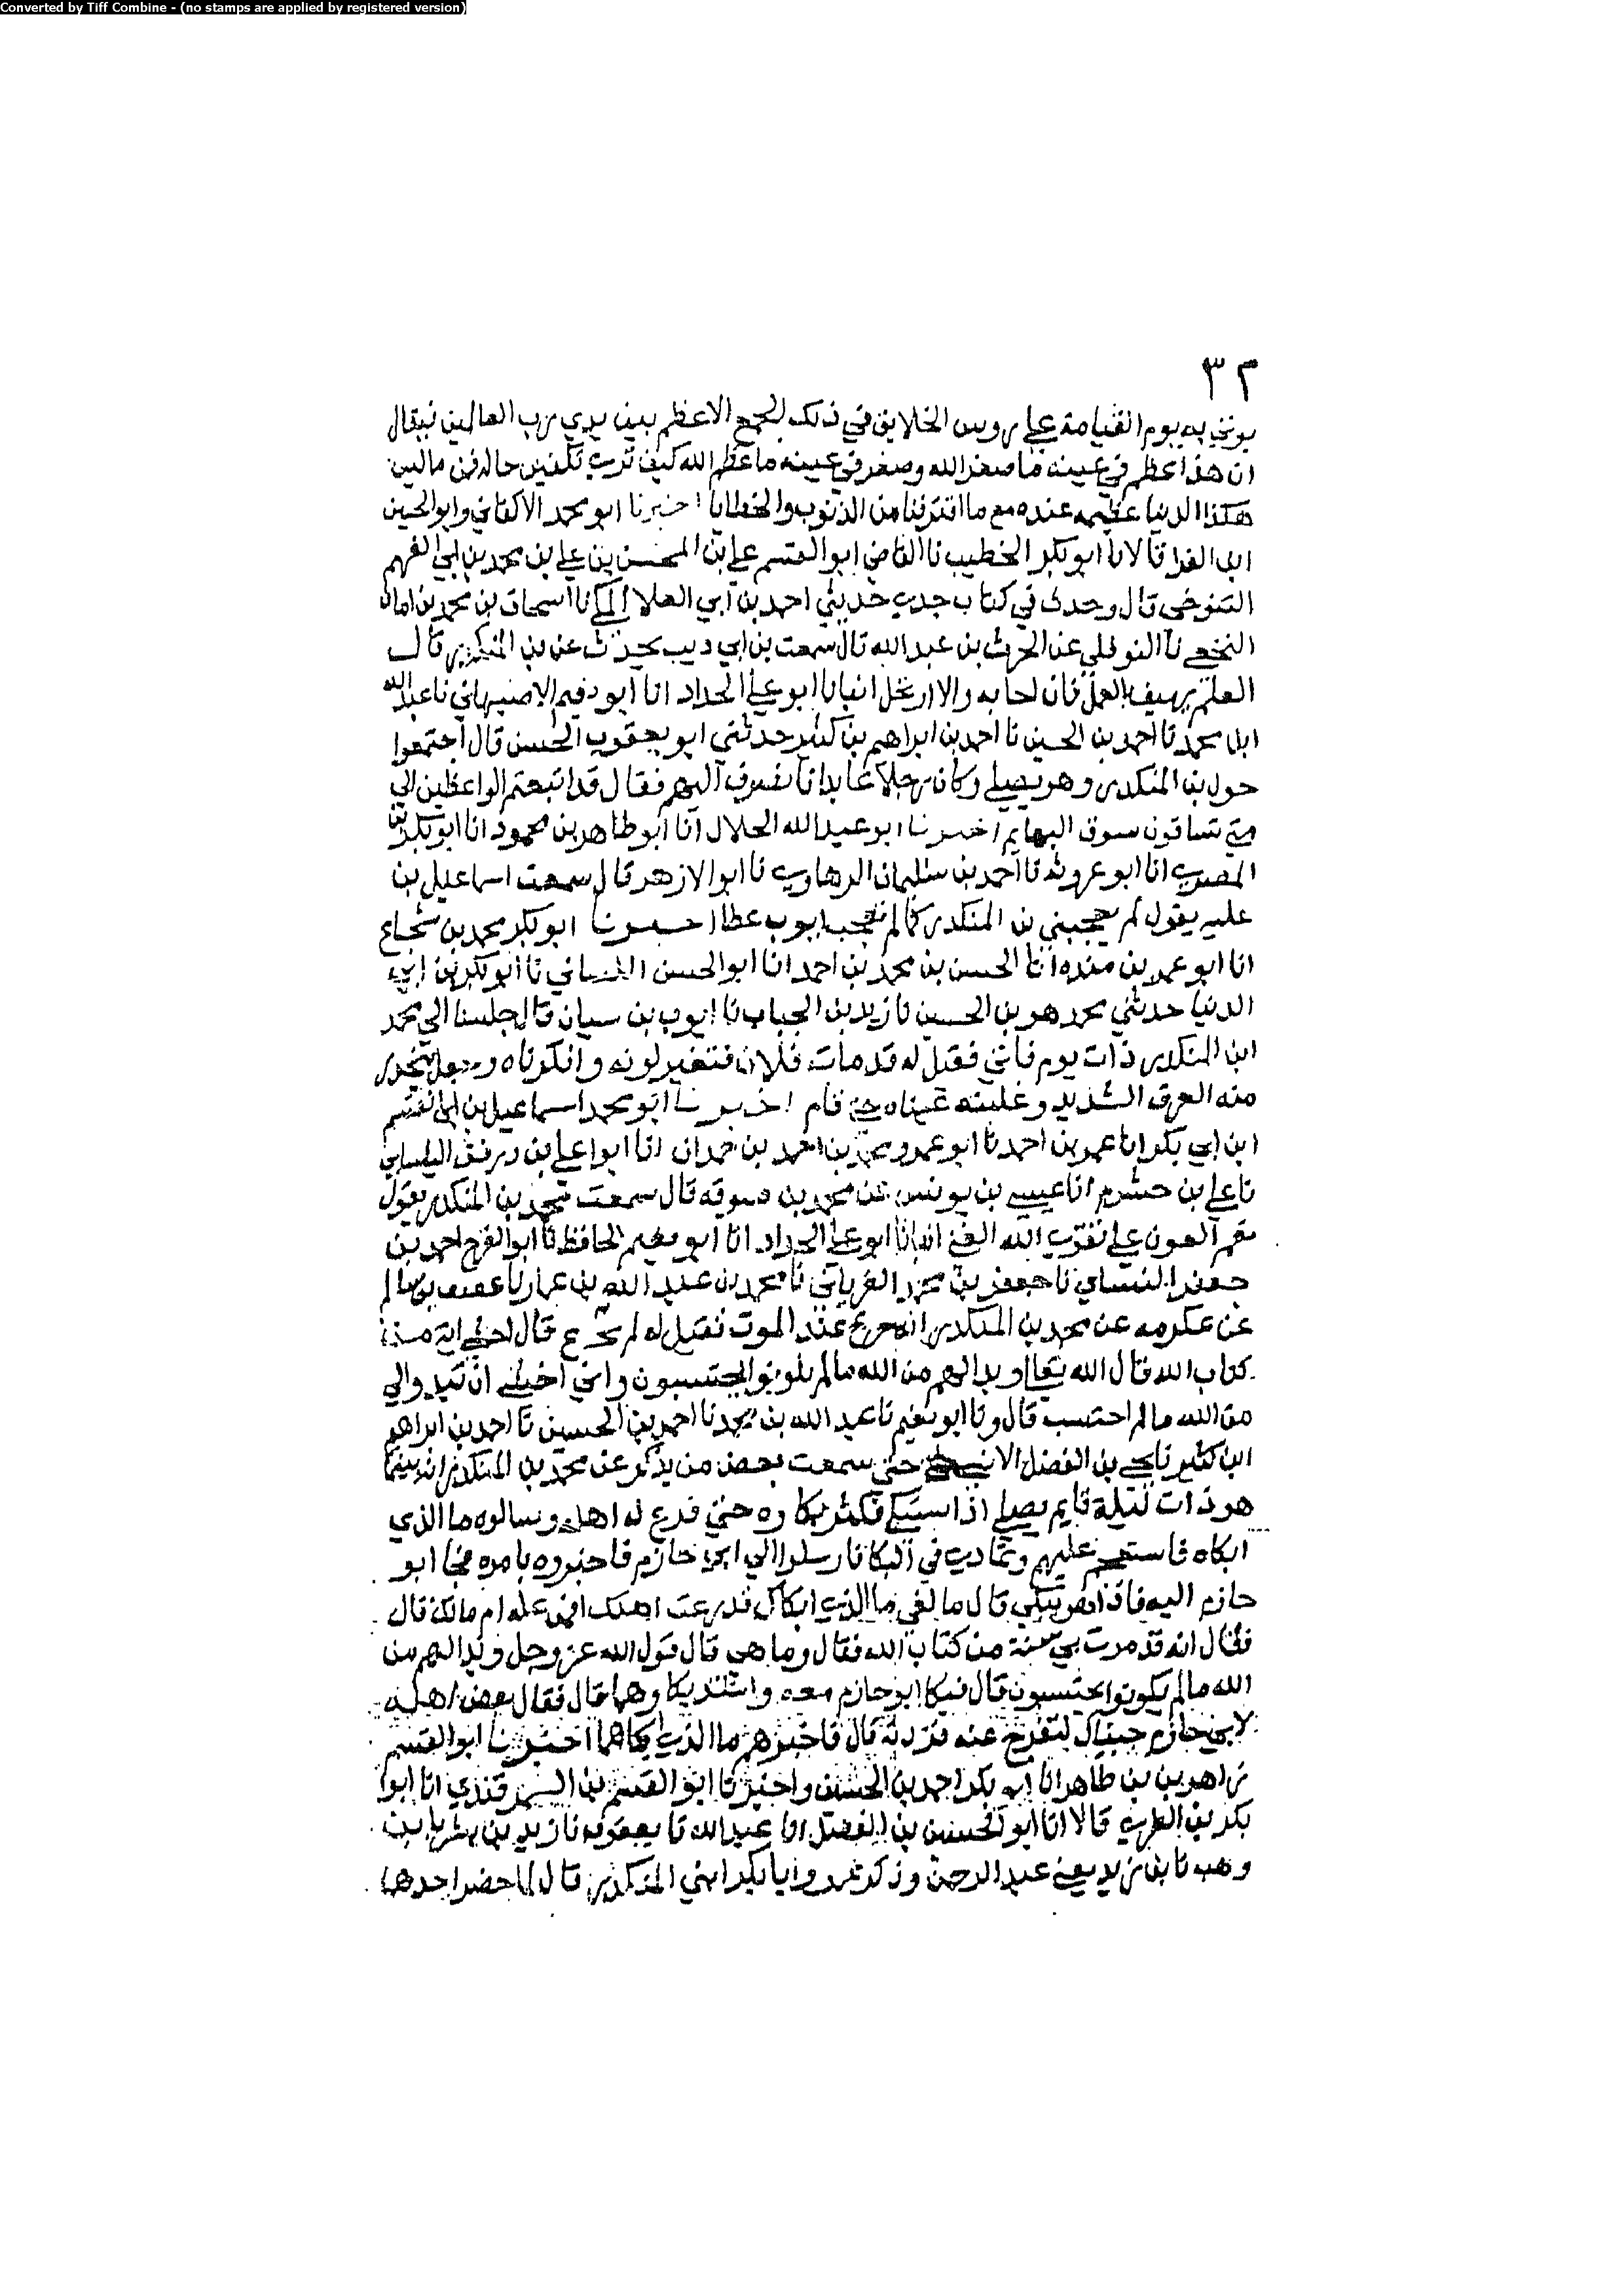 Converted by Tiff Combine - (no stamps are applied by registered version)
٣٢
يوتي به يوم القيامة علي روس الخلايق في ذلك الجمع الاعظم بين يدي رب العالمين فيقال
ان هذا عظم في عينه ما صغر الله وصغر في عينه ما عظم الله كيف تري تكون حاله فمن ما ليس
هكذا الدنيا عظيمه عنده مع ما اقترفنا من الذنوب والخطايا اخبرنا ابو محمد الاكفاني وابو الحسن
ابنا قالا نا ابو بكر الخطيب نا القاضي ابو القسم علي بن المحسن بن علي بن محمد بن ابي الفهم
التنوخي قال وجدت في كتاب جدي حدثني احمد بن ابي العلا المكي نا اسحاق بن محمد بن ابان
النخعي نا النوفلي عن الحرث بن عبد الله قال سمعت بن ابي ديب يحدث عن بن المنكدر قال
العلم يهتف بالعمل فان اجابه والا ارتحل انبانا ابو علي الحداد انا ابو نعيم الاصبهاني نا عبد الله
ابن محمد نا احمد بن الحسين نا احمد بن ابراهيم بن كثير حدثني ابو يعقوب الحسن قال اجتمعوا
حول بن المنكدر وهو يصلي وكان رجلا عابدا فانصرف اليهم فقال قد اتبعتم الواعظين الي
متي تساقون سوق البهايم اخبرنا ابو عبد الله الخلال انا ابو طاهر بن محمود انا ابو بكر بن
المصري انا ابو عروبه نا احمد بن سليمان الرهاوي نا ابو الازهر قال سمعت اسماعيل بن
عليه يقول لم يعجبني بن المنكدر كما لم يعجب ايوب عطا اخبرنا ابو بكر محمد بن شجاع
انا ابو عمرو بن منده انا الحسن بن محمد بن احمد انا ابو الحسن اللنباني نا ابو بكر بن ابي
الدنيا حدثني محمد هو بن الحسين نا زيد بن الحباب نا ايوب بن سيار قال جلسنا الي محمد
ابن المنكدر ذات يوم فاتي فقيل له قد مات فلان فتغير لونه وانكرناه وجعل يتحدر
منه العرق الشديد وغلبته عيناه حتي قام اخبرنا ابو محمد اسماعيل بن ابي القسم
ابن ابي بكر انا عمر بن احمد نا ابو عمرو محمد بن احمد بن حمدان انا ابو علي بن
نا علي بن خشرم انا عيسي بن يونس عن محمد بن سوقه قال سمعت محمد بن المنكدر يقول
نعم العون علي تقوي الله الغني انبانا ابو علي الحداد انا ابو نعيم الحافظ نا ابو الفرج احمد بن
جعفر النسايي نا جعفر بن محمد الفريابي نا محمد بن عبد الله بن عمار نا عفيف بن سالم
عن عكرمه عن محمد بن المنكدر انه جزع عند الموت فقيل له لم تجزع قال اخشي اية من
كتاب الله قال الله تعالي وبدا لهم من الله ما لم يكونوا يحتسبون واني اخشي ان تبدو لي
من الله ما لم احتسب قال ونا ابو نعيم نا عبد الله بن محمد نا احمد بن الحسين نا احمد بن ابراهيم
ابن كثير نا يحيي بن الفضل الانيسي سمعت بعض من يذكر عن محمد بن المنكدر انه بينما
هو ذات ليلة قايم يصلي اذ استبكي فكثر بكاوه حتي فزع له اهله وسالوه ما الذي
ابكاه فاستعجم عليهم وتمادي في البكا فارسلوا الي ابي حازم فاخبروه بامره فجا ابو
حازم اليه فاذا هو يبكي قال يا اخي ما الذي ابكاك قد رعت اهلك افمن علة ام مالك قال
فقال انه قد مرت بي من كتاب الله فقال وما هي قال قول الله عز وجل وبدا لهم من
الله ما لم يكونوا يحتسبون قال فبكا ابو حازم معه واشتد بكاوهما قال فقال بعض اهله
لابي حازم جيناك لتفرج عنه فزدته قال فاخبرهم ما الذي ابكاهما اخبرنا ابو القسم
زاهر بن طاهر انا ابو بكر احمد بن الحسين واخبرنا ابو القسم بن السمرقندي انا ابو
بكر بن الطبري قالا انا ابو الحسين بن الفضل انا عبد الله نا يعقوب نا زيد بن بشر نا بن
وهب نا بن زيد يعني عبد الرحمن وذكر عمر وابا بكر ابني المنكدر قال لما حضر احدهما